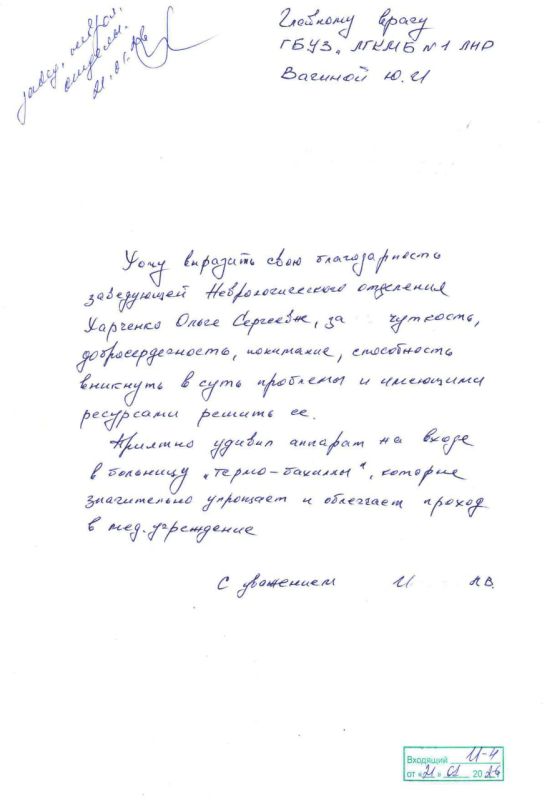 завед. невро.
отделен.
21.01.26
Главному врагу
ГБУЗ „ЛГКМБ №1 ЛНР
Вагиной Ю.И
Хочу выразить свою благодарность
заведующей Неврологического отделения
Харченко Ольге Сергеевне, за чуткость,
добросердечность, понимание, способность
вникнуть в суть проблемы и имеющими
ресурсами решить ее.
Приятно удивил аппарат на входе
в больницу „термо-бахиллы", которые
значительно упрощает и облегчает проход
в мед. учреждение
С уважением И Л.В.
Входящий И-4
от «21» 01 20 26